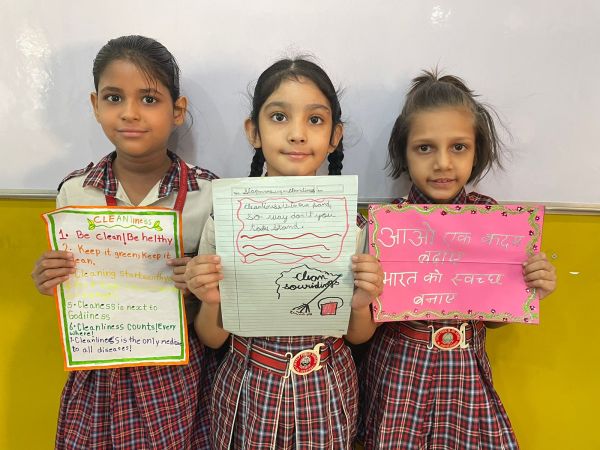 CLEANliness
1. Be clean/Be healthy
2. Keep it green, Keep it
clean.
Cleaning starts with
5. Cleaness is next to
Godiiness
6. Cleanliness Counts! Every
where!
7. Cleanliness is the only
to all diseases!
cleanliness is
so way don't you
take stand.
clean
souridings
आओ एक कदम
बढ़ाए
भारत को स्वच्छ
बनाए